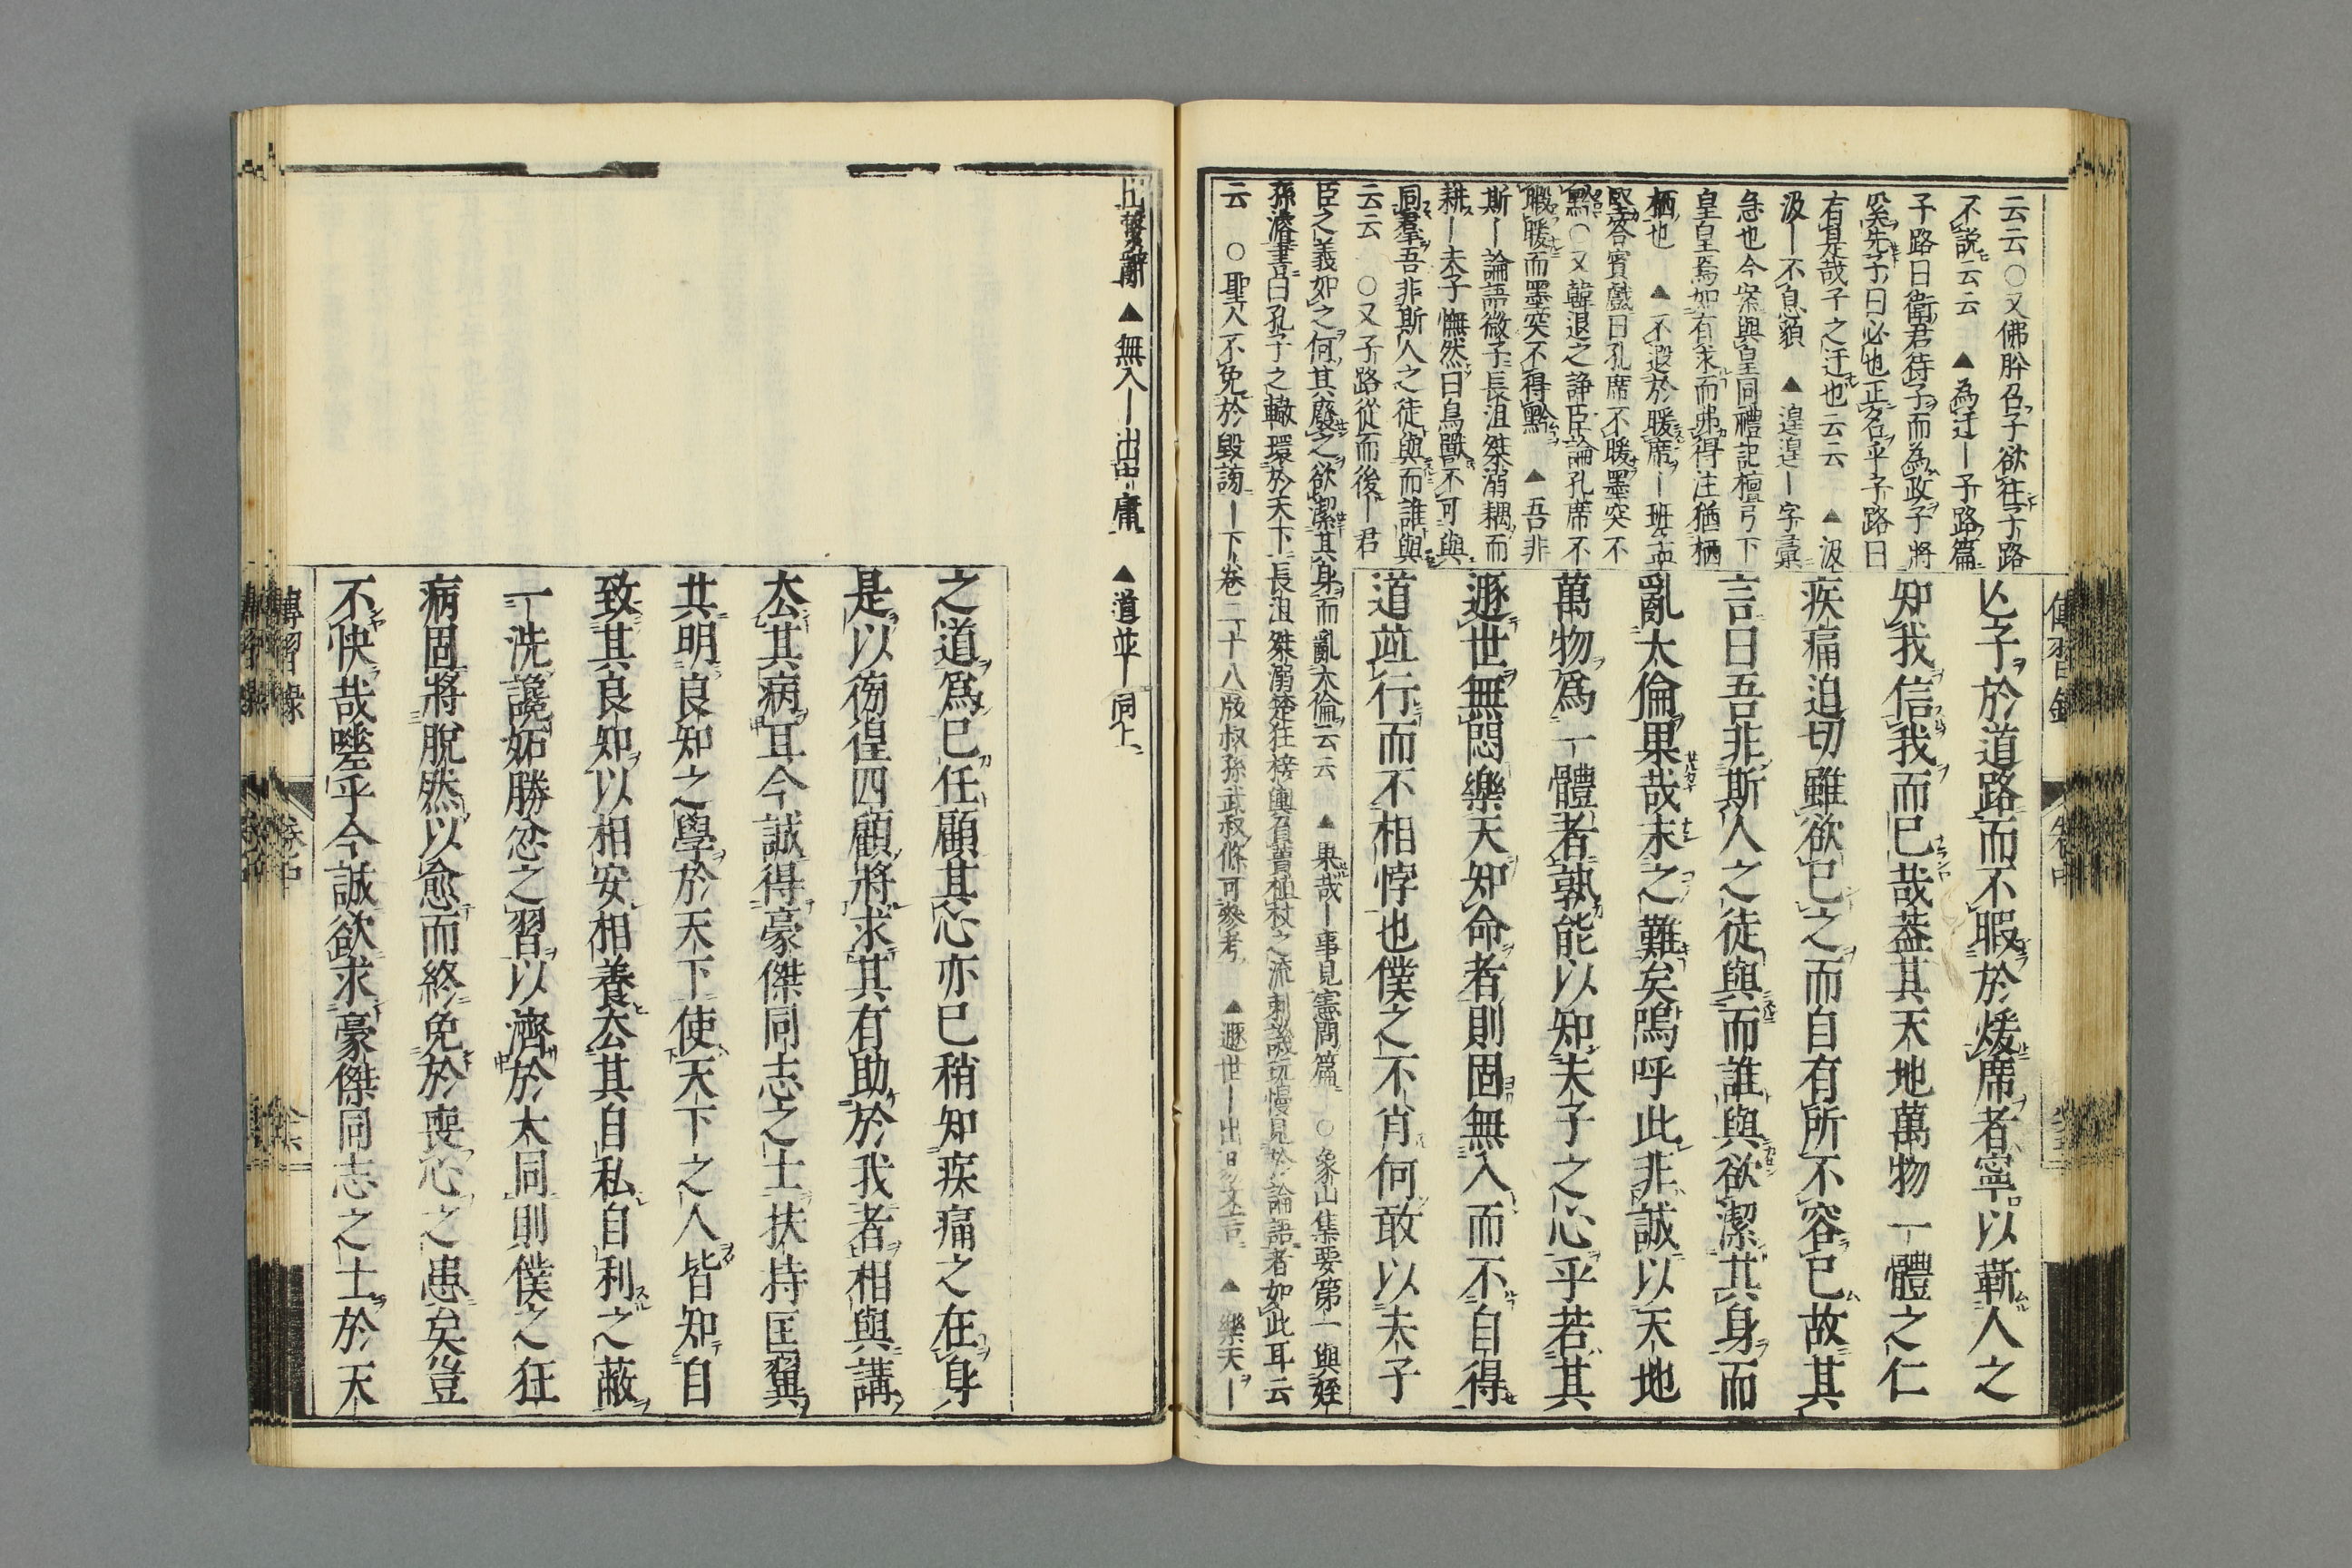 云云○又佛肸召子欲往子路
不説云云▲為迂〡子路篇
子路曰衛君待子而為政子將
奚先子曰必也正名乎子路曰
有是哉子之迂也云云▲汲
汲〡不息貌▲遑遑〡字彙
急也今案與皇同禮記檀弓下
皇皇焉如有求而弗得注猶栖
栖也▲不遑於暖席〡班孟
堅答賓戲曰孔席不暖墨突不
黔○又韓退之諍臣論孔席不
暇暖而墨突不得黔▲吾非
斯〡論語微子長沮桀溺耦而
耕〡夫子憮然曰鳥獸不可與
同羣吾非斯人之徒與而誰與
云云○又子路從而後〡君
臣之義如之何其廢之欲潔其身而亂大倫云云▲果哉〡事見憲問篇○象山集要第一與姪
孫濬書曰孔子之轍環於天下長沮桀溺楚狂接輿負蕢植杖之流刺譏玩慢見於論語者如此耳云
云○聖人不免於毀謗〡下卷二十八版叔孫武叔條可參考▲遯世〡出易文言▲樂天〡
亾子於道路而不暇於煖席者寧以蘄人之
知我信我而已哉蓋其天地萬物一體之仁
疾痛迫切雖欲已之而自有所不容已故其
言曰吾非斯人之徒與而誰與欲潔其身而
亂大倫果哉末之難矣嗚呼此非誠以天地
萬物爲一體者孰能以知夫子之心乎若其
遯世無悶樂天知命者則固無入而不自得
道竝行而不相悖也僕之不肖何敢以夫子
傳習錄 卷中
出繫辭▲無入〡出中庸▲道並〡同上
之道爲己任顧其心亦已稍知疾痛之在身
是以徬徨四顧將求其有助於我者相與講
去其病耳今誠得豪傑同志之士扶持匡翼
共明良知之學於天下使天下之人皆知自
致其良知以相安相養去其自私自利之蔽
一洗讒妬勝忿之習以濟於大同則僕之狂
病固將脫然以愈而終免於喪心之患矣豈
不快哉嗟乎今誠欲求豪傑同志之士於天
傳習錄 卷中